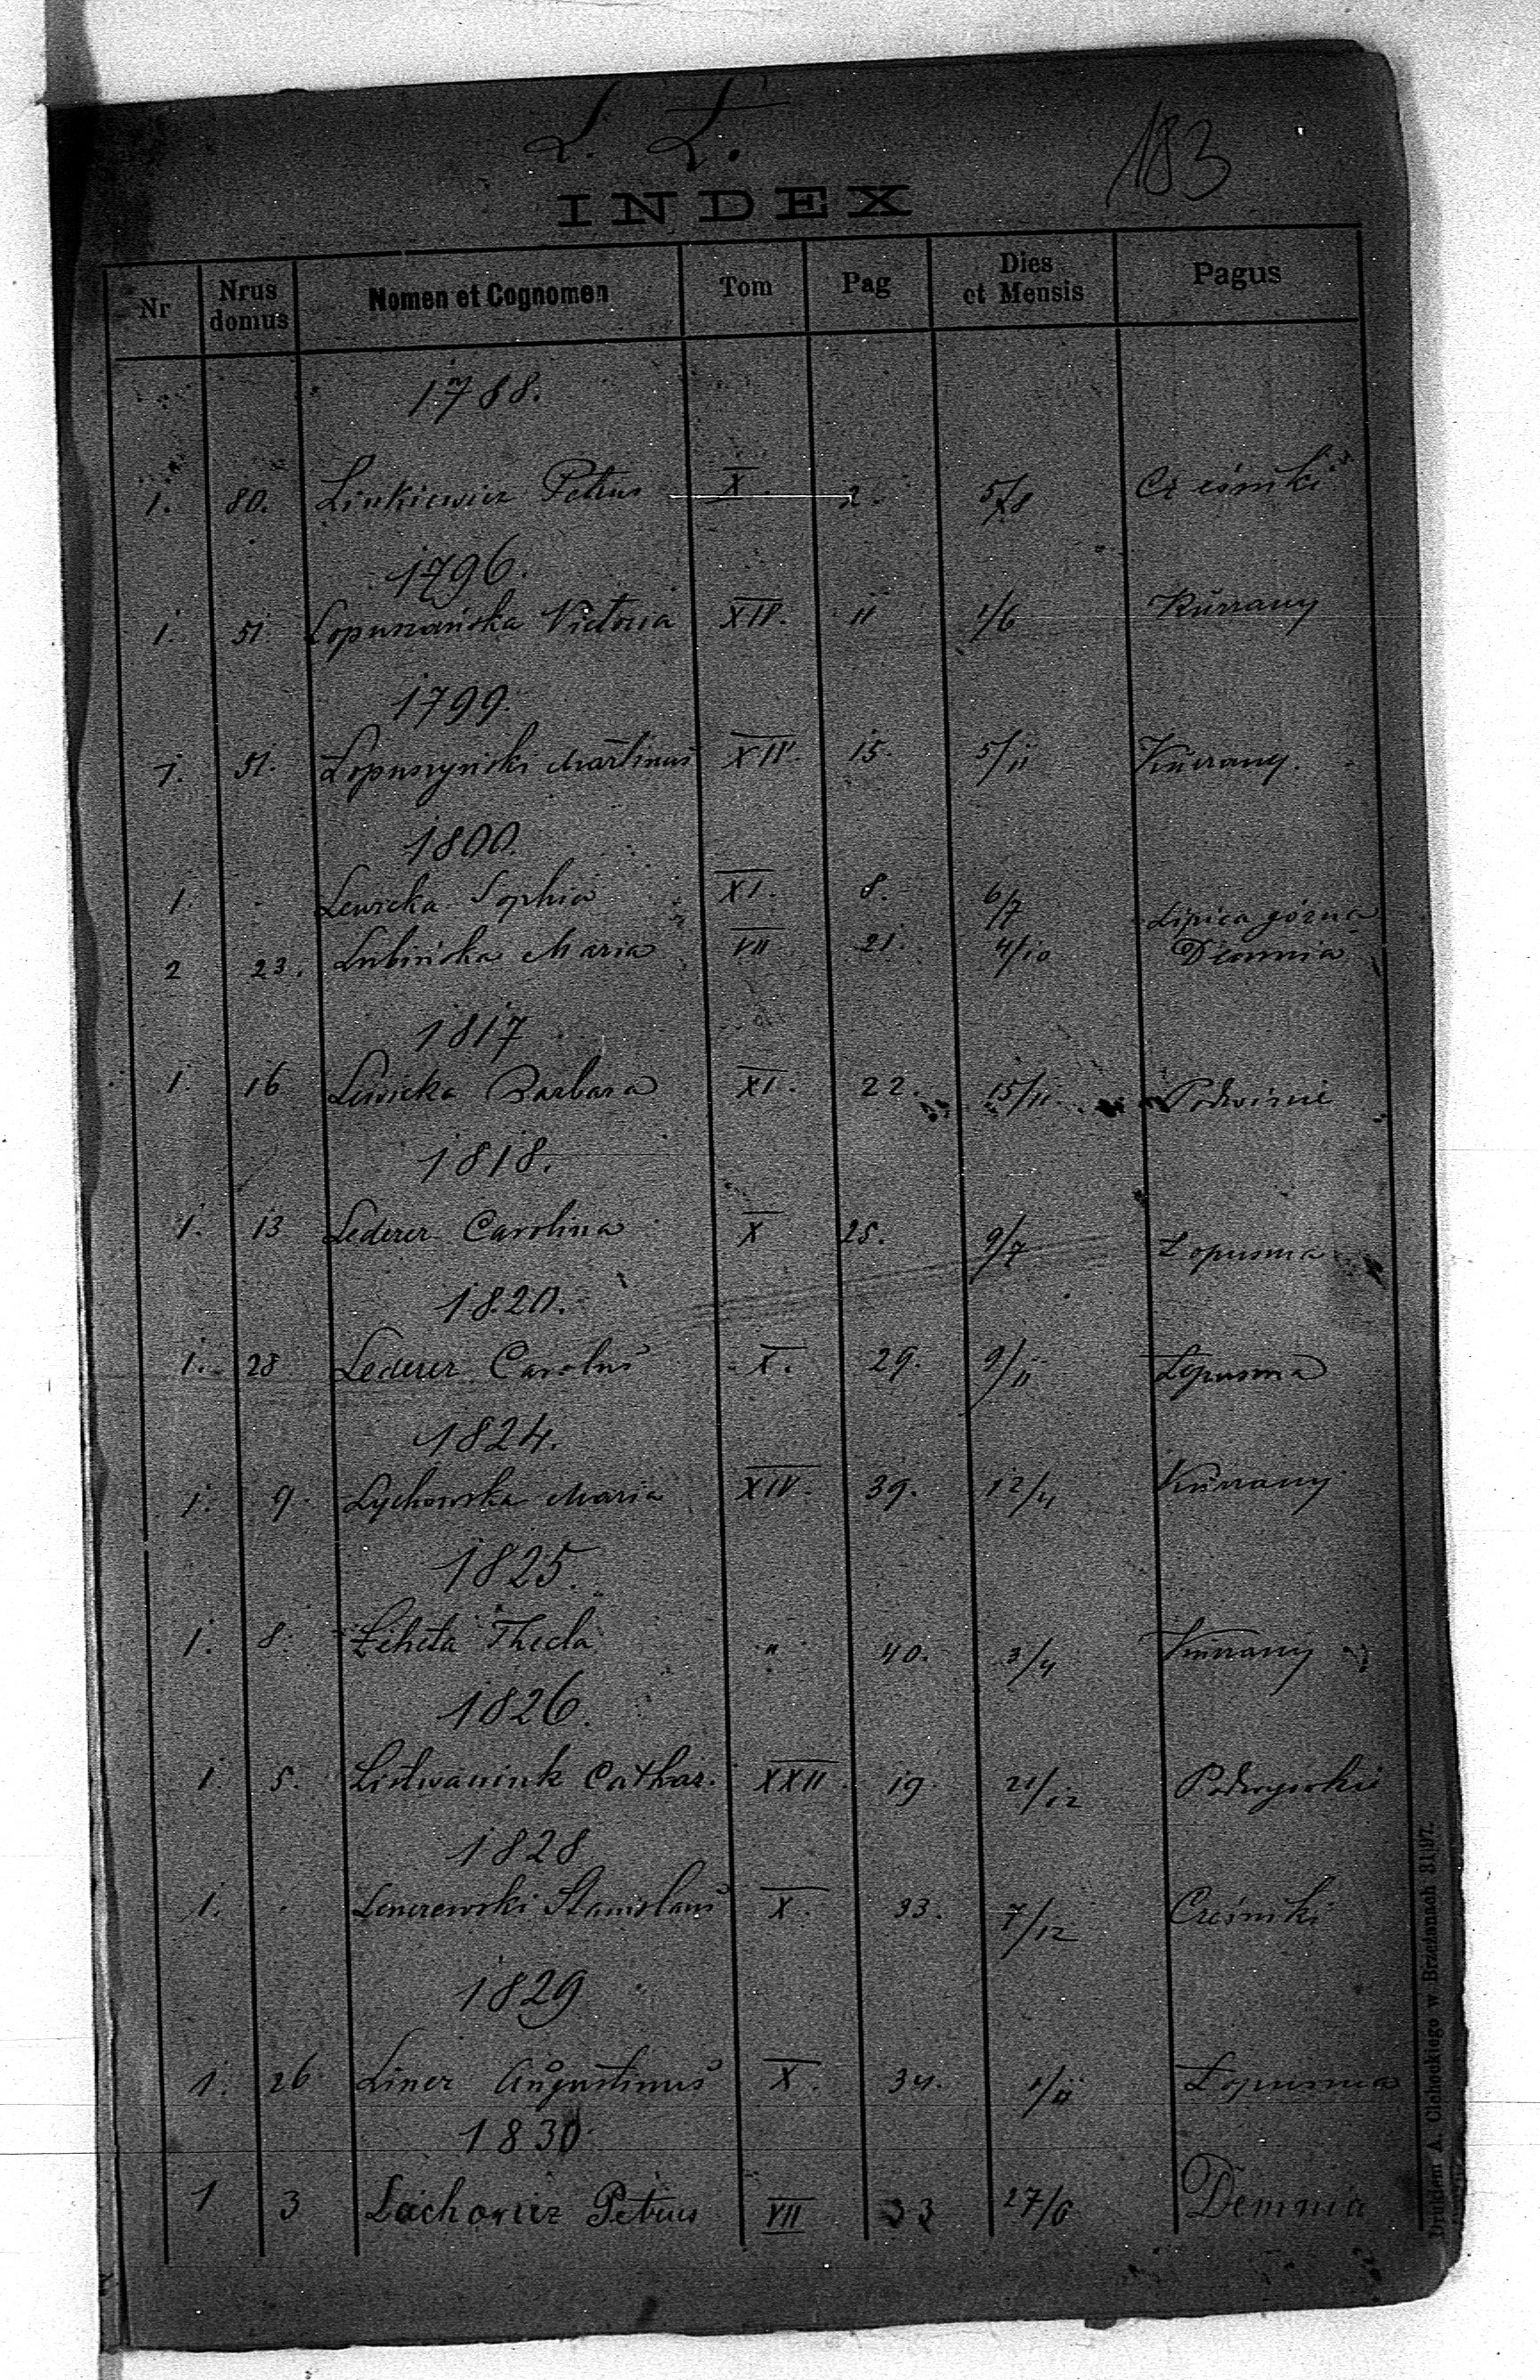 L. Ł.
183
INDEX
Nr Nrus domus Nomen et Cognomen Tom Pag Dies et Mensis Pagus
1788.
1. 80. Linkiewicz Petrus X. 2. 5/8 Cześniki
1796.
1. 51. Łopuszańska Victoria XIV. 11 1/6 Kurzany
1799.
1. 51. Łopuszyński Martinus XIV. 15. 5/11 Kurzany.
1800.
1. Lewicka Sophia XI. 8. 6/7 Lipica górna
2 23. Lubińska Maria VII 21. 4/10 Demnia
1817
1. 16 Lewicka Barbara XI. 22. 15/11.
1818.
1. 13 Lederer Carolina X 25. 9/7 Łopuszna
1820.
1. 28 Lederer Carolus X. 29. 9/11 Łopuszna
1824.
1. 9. Lychowska Maria XIV. 39. 12/4 Kurzany
1825.
1. 8. Thecla " 40. 3/4 Kurzany
1826.
1. 5. Cathar. XXII. 19. 21/12
1828
1. Stanislaus X. 33. 7/12 Cześniki
1829
1. 26 Liner Augustinus X. 34. 1/11 Łopuszna
1830.
1 3 Lachowicz Petrus VII 33 27/6 Demnia
Drukiem A. Cichockiego w Brzeżanach 81|97.